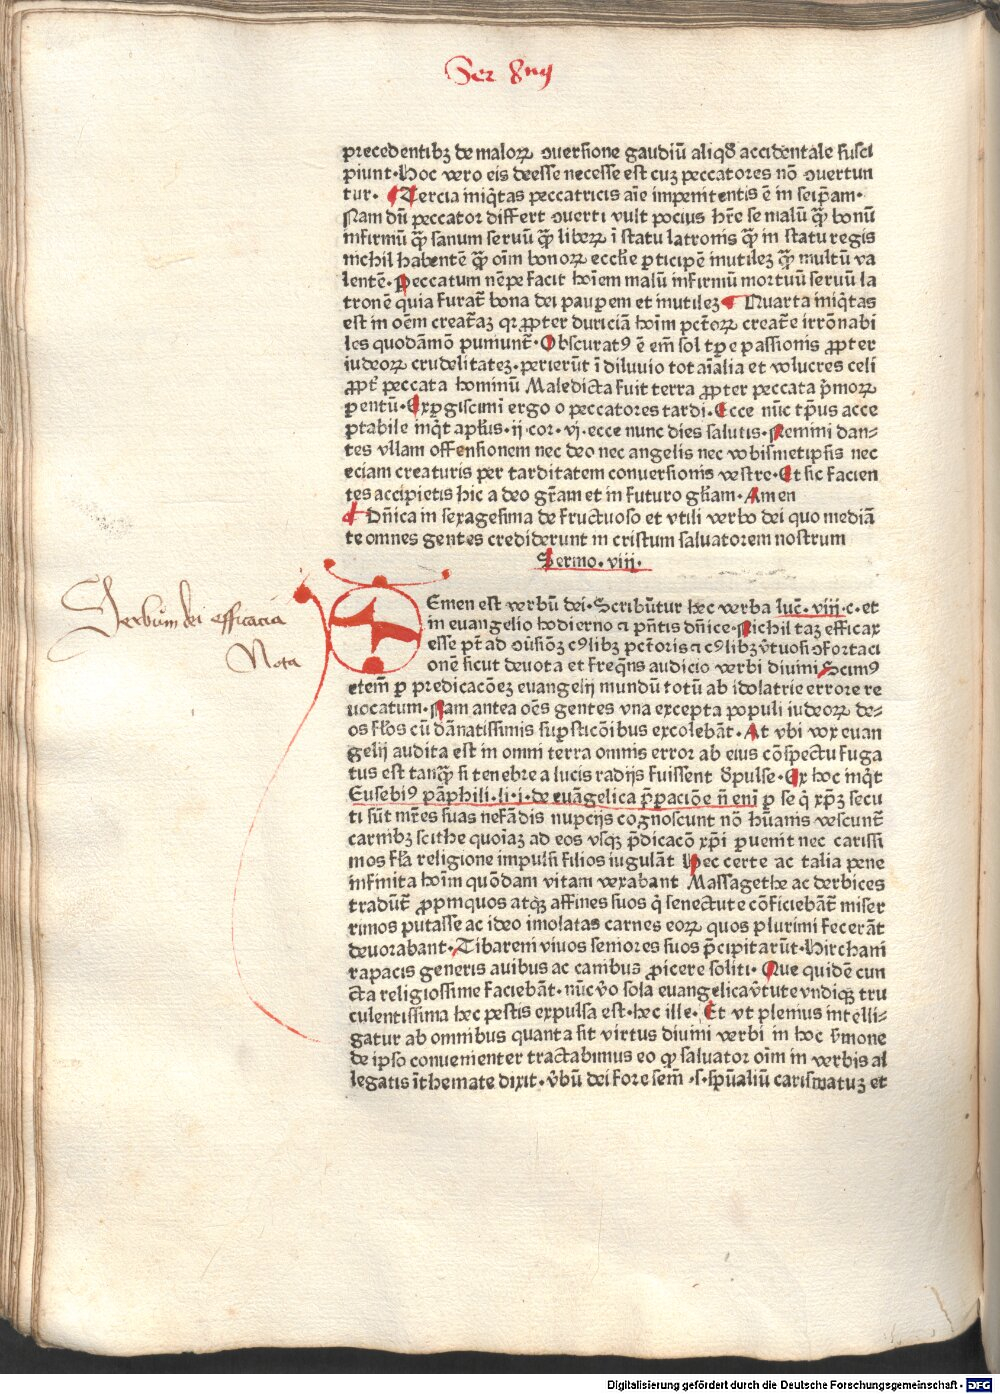 Ser 8nij
precedentibꝫ de maloꝝ ↄuersione gaudiū aliqd̄ accidentale susci
piunt·Hoc vero eis deesse necesse est cuꝫ peccatores nō ↄuertun
tur· ¶Tercia iniq̄tas peccatricis aīe impenitentis ē in seip̄am·
Nam dū peccator differt ↄuerti vult pocius hr̄e se malū qꝫ̄ bonū
infirmū qꝫ̄ sanum seruū qꝫ̄ libeꝝ ī statu latronis qꝫ̄ in statu regis
nichil habentē qꝫ̄ oīm bonoꝝ eccłie ꝑticipē inutileꝫ qꝫ̄ multū va
lentē·Peccatum nēpe facit hoīem malū infirmū mortuū seruū la
tronē quia furat̄ bona dei pauꝑem et inutileꝫ ¶ Quarta iniq̄tas
est in oēm creat̄aꝫ qꝛ ꝓpter duriciā hoīm pct̄oꝝ creat̄e irrōnabi
les quodāmō puniunt̄·Obscuratꝰ ē em̄ sol tꝑe passionis ꝓpter
iudeoꝝ crudelitateꝫ·perierūt ī diluuio tot aīalia et volucres celi
ꝓpt̄ peccata hominū Maledicta fuit terra ꝓpter peccata p̄moꝝ
ꝑentū·Exꝑgiscimī ergo o peccatores tardi·Ecce nūc tp̄us acce
ptabile inq̄t apłus·ij·cor·vj·ecce nunc dies salutis·Nemini dan⸗
tes vllam offensionem nec deo nec angelis nec vobismetipsis nec
eciam creaturis per tarditatem conuersionis vestre·Et sic facien
tes accipietis hic a deo gr̄am et in futuro głiam·Amen
¶ Dn̄ica in sexagesima de fructuoso et vtili verbo dei quo mediā
te omnes gentes crediderunt in cristum saluatorem nostrum
Sermo·viij·
SEmen est verbū dei·Scribūtur hec verba luc̄·viij·c·et
in euangelio hodierno ci pn̄tis dn̄ice·Nichil taꝫ efficax
esse pt̄ ad ↄūsiōꝫ cꝰlibꝫ pctoris ci cꝰlibꝫ v̄tuosi ↄfortaci
onē sicut deuota et freq̄ns audicio verbi diuini Scimꝰ
etem̄ ꝑ predicacōeꝫ euangelij mundū totū ab idolatrie errore re
uocatum·Nam antea oēs gentes vna excepta populi iudeoꝝ de⸗
os fłos cū dānatissimis suꝑsticōibus excolebāt·At vbi vox euan
gelij audita est in omni terra omnis error ab eius cōspectu fuga
tus est tanqꝫ̄ si tenebre a lucis radijs fuissent d̄pulse·Ex hoc inq̄t
Eusebiꝰ pāphili·li·i·de euāgelica p̄paciōe n̄ enī ꝑ se q̄ xp̄ꝫ secu
ti sūt mr̄es suas nefādis nupcijs cognoscunt nō hūanis vescunt̄
carnibꝫ scithe quoīaꝫ ad eos vsqꝫ p̄dicacō xp̄i ꝑuenit nec carissi
mos fła religione impulsi filios iugulāt Hec certe ac talia pene
infinita hoīm quōdam vitam vexabant Massagethe ac derbices
tradūt̄ ꝓpinquos atqꝫ affines suos q̄ senectute cōficiebāt̄ miser
rimos putasse ac ideo imolatas carnes eoꝝ quos plurimi fecerāt
deuorabant·Tibareni viuos seniores suos p̄cipitarūt·Hirchani
rapacis generis auibus ac canibus ꝓicere soliti·Que quidē cun
cta religiosissime faciebāt·nūc v̄o sola euangelica v̄tute vndiqꝫ tru
culentissima hec pestis expulsa est·hec ille·Et vt plenius intelli⸗
gatur ab omnibus quanta sit virtus diuini verbi in hoc s̄mone
de ipso conuenienter tractabimus eo qꝙ saluator oīm in verbis al
legatis ī themate dixit·v̄bū dei fore sem̄·s·sp̄ualiū carismatuꝫ et
Verbum dei efficacia
Nota
Digitalisierung gefördert durch die Deutsche Forschungsgemeinschaft - DFG